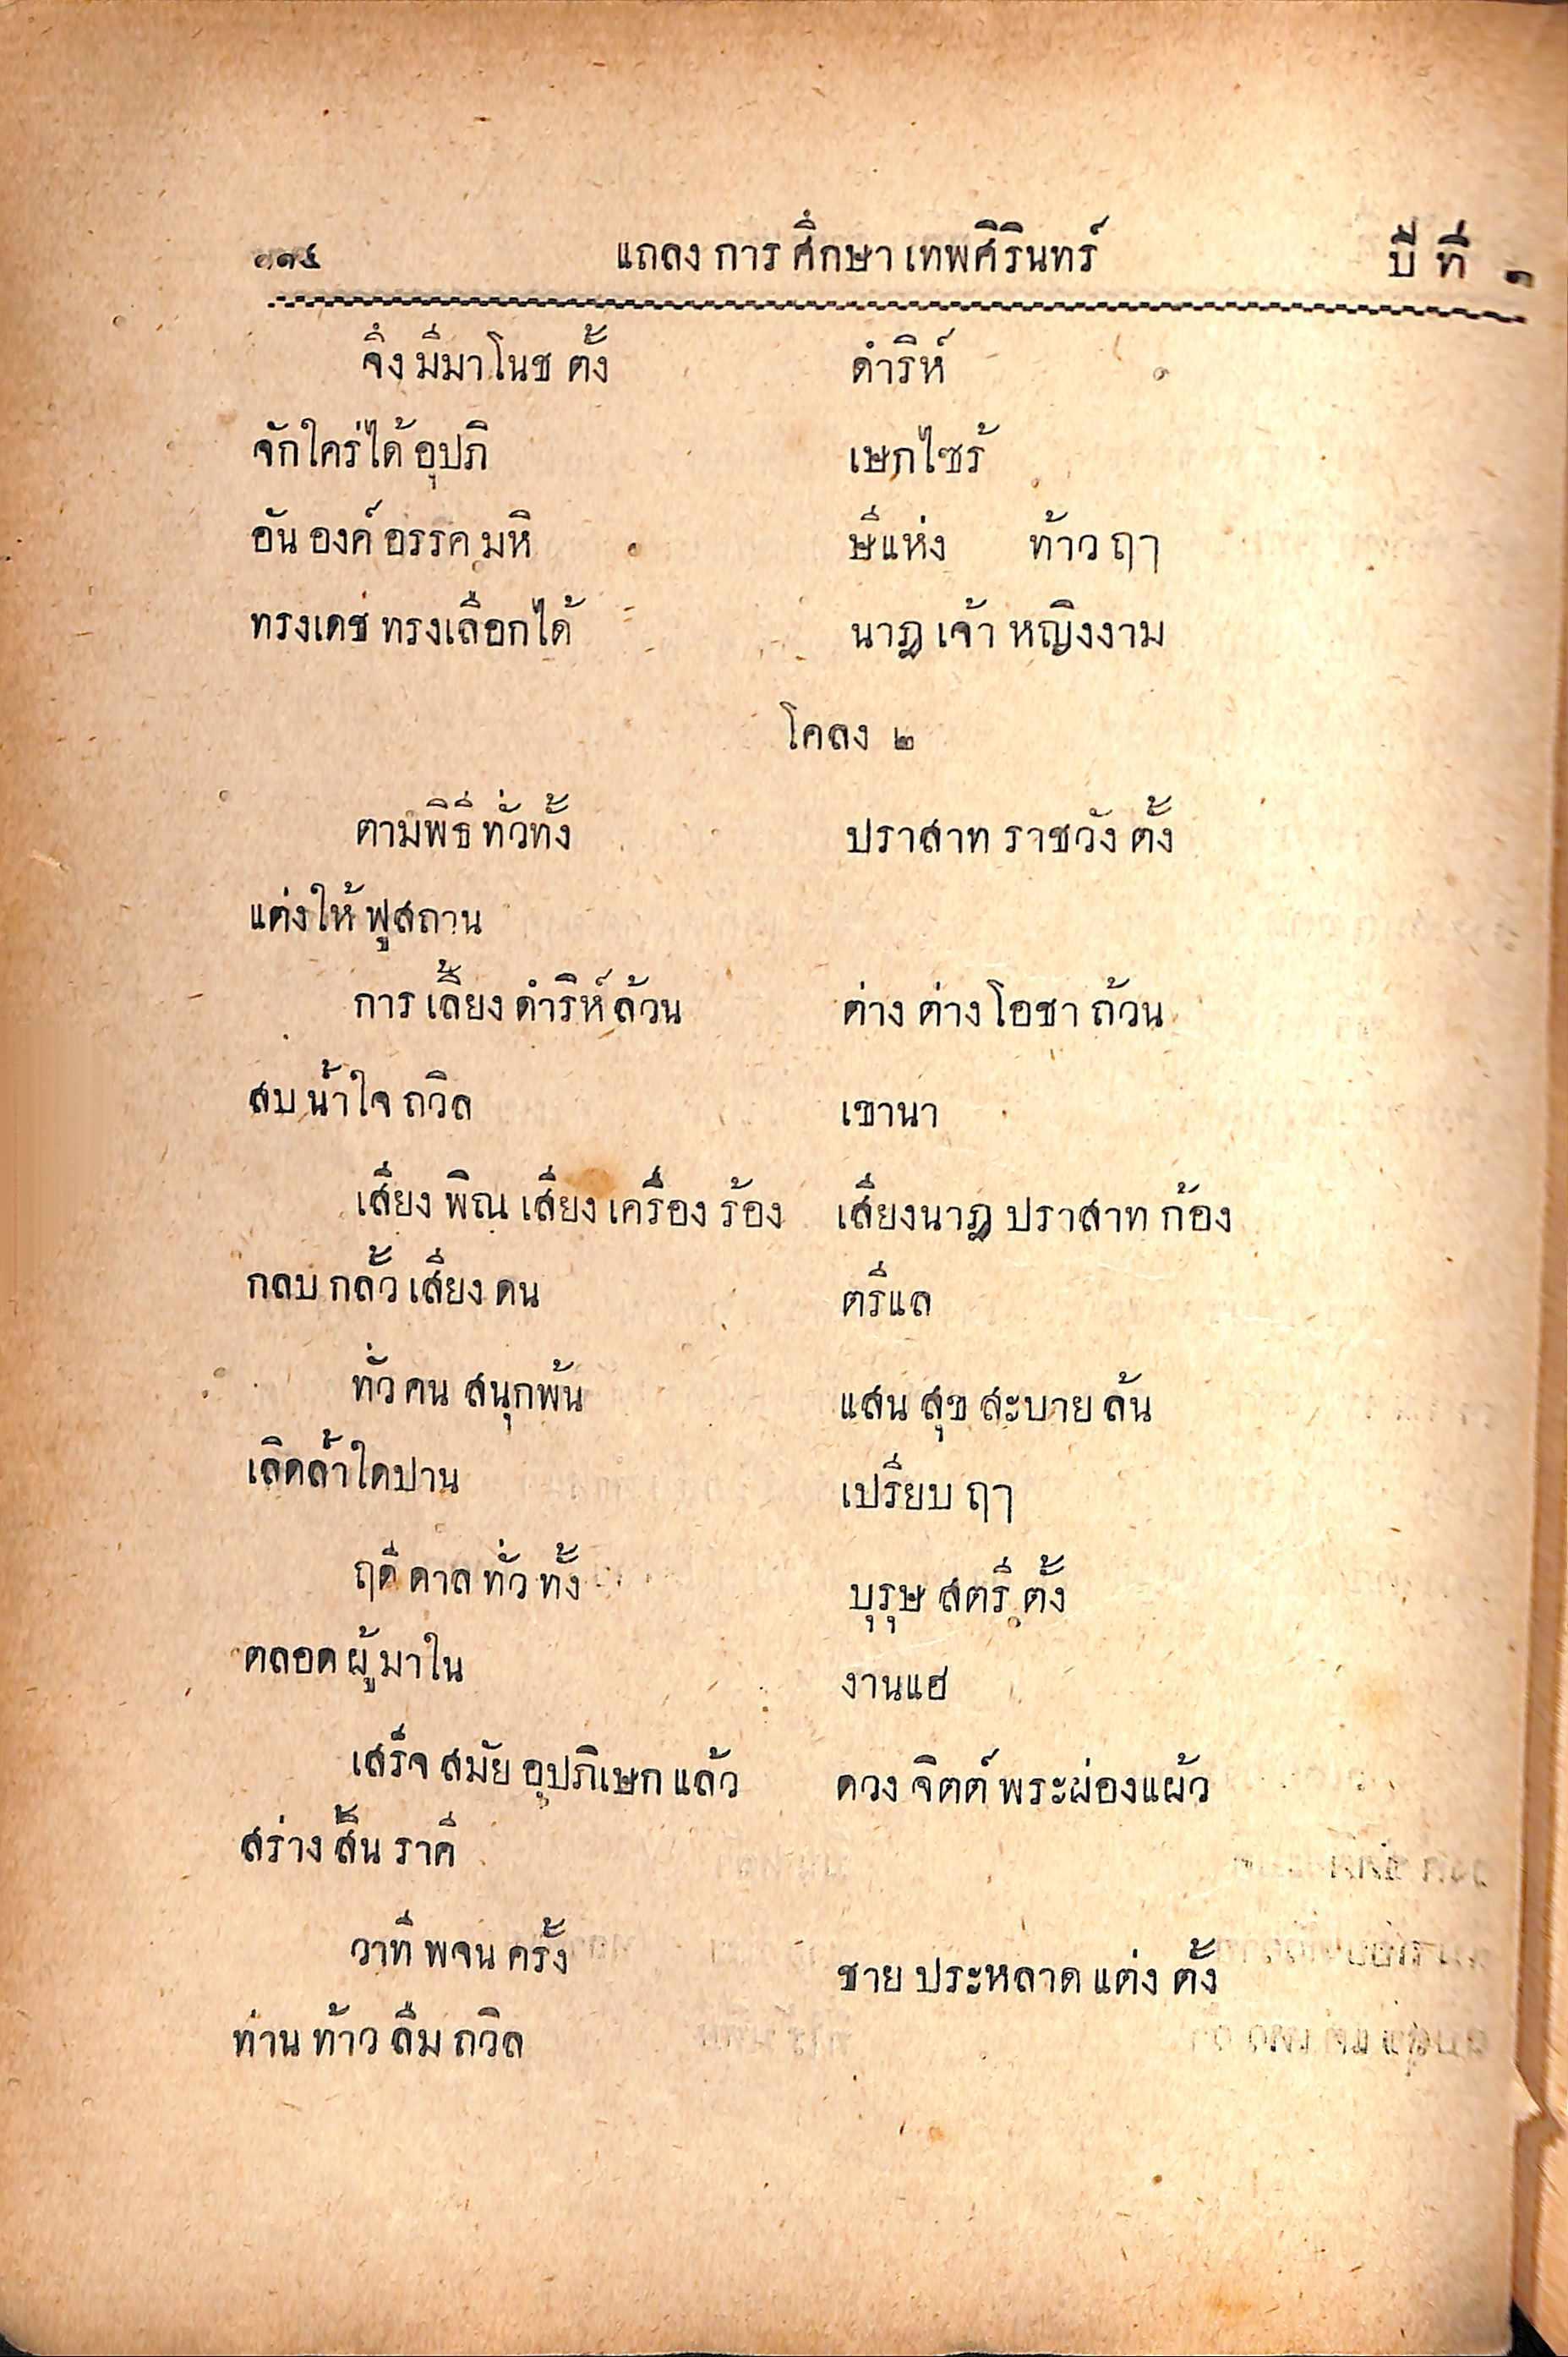 ๑๑๔ แถลงการศึกษาเทพศิรินทร์ ปีที่ ๑
จึ่งมีมาโนชตั้ง ดำริห์
จักใคร่ได้อุปภิ เษกไซร้
อันองค์อรรคมหิ ษีแห่ง ท้าวฤๅ
ทรงเดชทรงเลือกได้ นาฎเจ้าหญิงงาม
โคลง ๒
ตามพิธีทั่วทั้ง ปราสาทราชวังตั้ง
แต่งให้ฟูสถาน
การเลี้ยงดำริห์ล้วน ต่างต่างโอชาถ้วน
สบน้ำใจถวิล เขานา
เสียงพิณเสียงเครื่องร้อง เสียงนาฎปราสาทก้อง
กลบกลั้วเสียงดน ตรีแล
ทั่วคนสนุกพ้น แสนสุขสะบายล้น
เลิดล้ำใดปาน เปรียบฤๅ
ฤดีดาลทั่วทั้ง บุรุษสตรีตั้ง
ตลอดผู้มาใน งานแฮ
เสร็จสมัยอุปภิเษกแล้ว ดวงจิตต์พระผ่องแผ้ว
สร่างสิ้นราคี
วาทีพจนครั้ง ชายประหลาดแต่งตั้ง
ท่านท้าวลืมถวิล